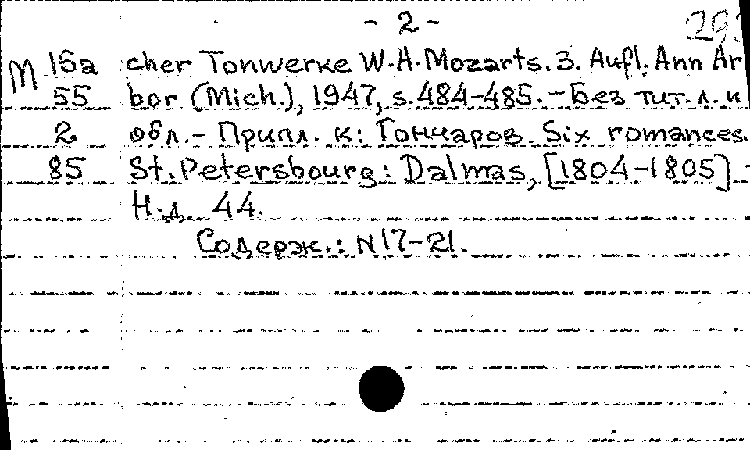 - 2 -
М 15а cher Tonwerke W.A.Mozarts. 3. Aufl. Ann Ar
55 bor (Mich.), 1947, s.484-485. - Без тит. л. и
2 обл. - Припл. к: Гончаров. Six romances.
85 St. Petersbourg: Dalmas, [1804-1805] -
Н.д. 44.
Содерж.: N 17-21.